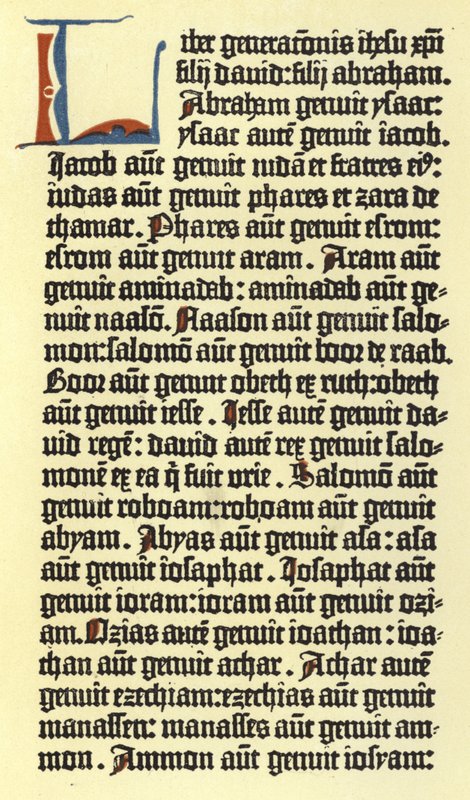 Liber generatōnis ihesu xp̄i
filij david: filij abraham.
Abraham genuit ysaac:
ysaac autē genuit iacob.
Jacob aūt genuit iudā et fratres eiꝰ:
iudas aūt genuit phares et zara de
thamar. Phares aūt genuit esrom:
esrom aūt genuit aram. Aram aūt
genuit aminadab: aminadab aūt ge-
nuit naasō. Naason aūt genuit salo-
mon: salomō aūt genuit booz de raab.
Booz aūt genuit obeth ex ruth: obeth
aūt genuit iesse. Jesse autē genuit da-
uid regē: dauid autē rex genuit salo-
monē ex ea q̄ fuit vrie. Salomō aūt
genuit roboam: roboam aūt genuit
abyam. Abyas aūt genuit asa: asa
aūt genuit iosaphat. Josaphat aūt
genuit ioram: ioram aūt genuit ozi-
am. Ozias autē genuit ioathan: ioa-
than aūt genuit achaz. Achaz autē
genuit ezechiam: ezechias aūt genuit
manassen: manasses aūt genuit am-
mon. Ammon aūt genuit iosyam: